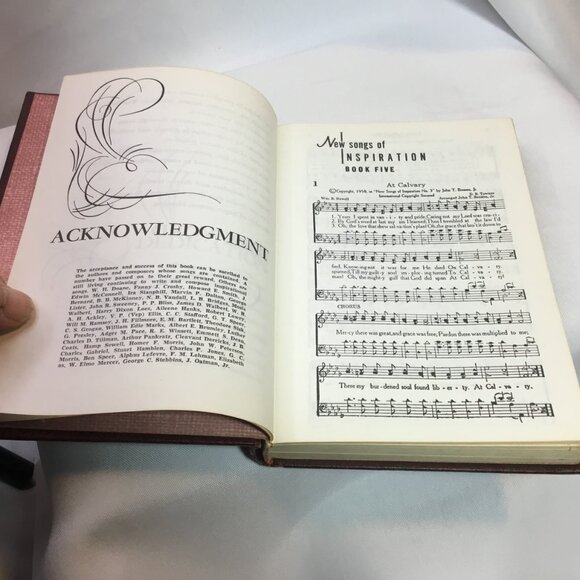 ACKNOWLEDGMENT
The acceptance and success of this book can be ascribed to
the authors and composers whose songs are contained. A
number have passed on to their great reward. Others are
still living continuing to write and compose inspirational
songs. W. H. Doane, Fanny J. Crosby, Howard
Edwin McConnell, Ira Stanphill, Marvin P. Dalton,
Bernard, B. B. McKinney, N. B. Vandall, L. B. Bridges,
Lister, John R. Sweney, P. P. Bliss, James D. Walbert,
Walbert, Harry Dixon Loes, Aileene Hanks, Robert Lowry,
A. H. Ackley, V. P. (Vep) Ellis, C. C. Stafford, G. T. Speer,
Will M. Ramsey, J. H. Fillmore, E. M. Bartlett, Theodore
C. S. Grogan, William Edie Marks, Albert E. Brumley, Luther
G. Presley, Adger M. Pace, R. E. Winsett, Emmett S. Dean,
Charles D. Tillman, Arthur Pankratz, Cleavant Derricks, J. B.
Coats, Hamp Sewell, Homer F. Morris, John W. Peterson,
Charles Gabriel, Stuart Hamblen, Charles P. Jones, G. C.
Morris, Ben Speer, Alphus Lefevre, F. M. Lehman, Elizabeth
W. Elmo Mercer, George C. Stebbins, J. Oatman, Jr.
New songs of
INSPIRATION
BOOK FIVE
1
At Calvary
©Copyright, 1958, in "New Songs of Inspiration No. 5" by John T. Benson, Jr.
International Copyright Secured
D. B. Towner
Wm. R. Newell
Arranged John T. Benson, Jr.
1. Years I spent in van - i - ty and pride, Caring not my Lord was cru-ci-
2. By God's word at last my sin I learned; Then I trembled at the law I'd
3. Oh, the love that drew sal - va - tion's plan! Oh, the grace that bro't it down to
fied, Knowing not it was for me He died On Cal - va - ry.
spurned, Till my guilt-y soul im-plor-ing turned To Cal - va - ry.
man! Oh, the might-y gulf that God did span At Cal - va - ry!
CHORUS
Mercy there was great, and grace was free; Pardon there was multiplied to me;
There my bur-dened soul found lib - er - ty, At Cal - va - ry.